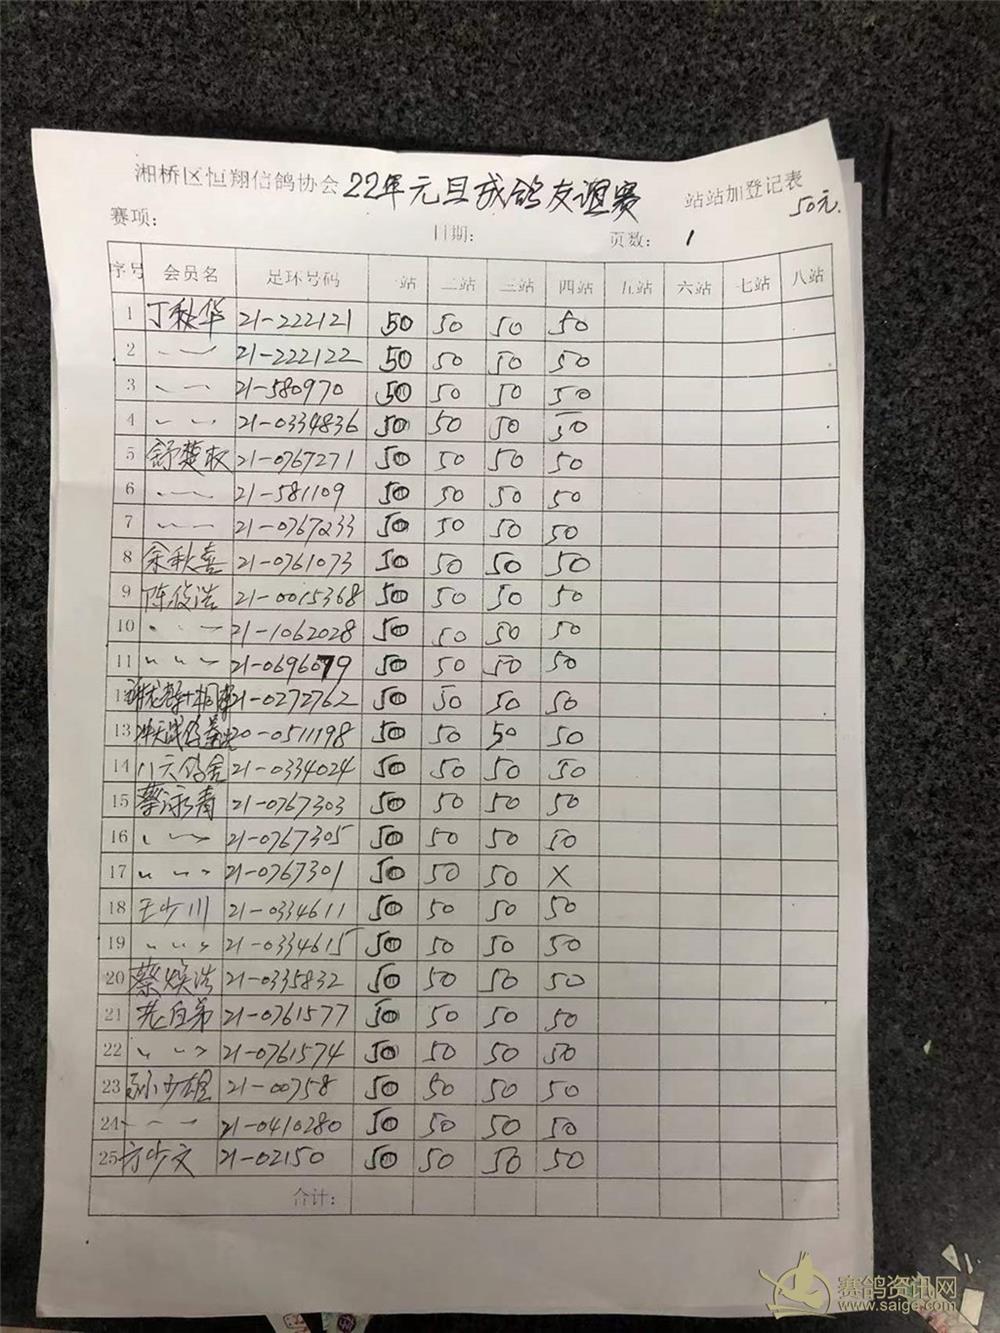 湘桥区恒翔信鸽协会 22年元旦成鸽友谊赛 站站加登记表
50元.
赛项: 日期: 页数: 1
序号 会员名 足环号码 一站 二站 三站 四站 五站 六站 七站 八站
1 丁秋华 21-222121 50 50 50 50
2 〃 21-222122 50 50 50 50
3 〃 21-580970 50 50 50 50
4 〃 21-0334836 50 50 50 50
5 舒楚收 21-0767271 50 50 50 50
6 〃 21-581109 50 50 50 50
7 〃 21-0767233 50 50 50 50
8 余秋喜 21-0761073 50 50 50 50
9 陈俊浩 21-0015368 50 50 50 50
10 〃 21-1062028 50 50 50 50
11 〃 21-0696079 50 50 50 50
12 21-0272762 50 50 50 50
13 20-0511198 50 50 50 50
14 八六鸽舍 21-0334024 50 50 50 50
15 蔡泳青 21-0767303 50 50 50 50
16 〃 21-0767305 50 50 50 50
17 〃 21-0767301 50 50 50 X
18 王少川 21-0334611 50 50 50 50
19 〃 21-0334615 50 50 50 50
20 蔡焕浩 21-0335832 50 50 50 50
21 21-0761577 50 50 50 50
22 〃 21-0761574 50 50 50 50
23 孙少雄 21-00758 50 50 50 50
24 〃 21-0410280 50 50 50 50
25 方少文 21-02150 50 50 50 50
合计:
赛鸽资讯网
www.saige.com